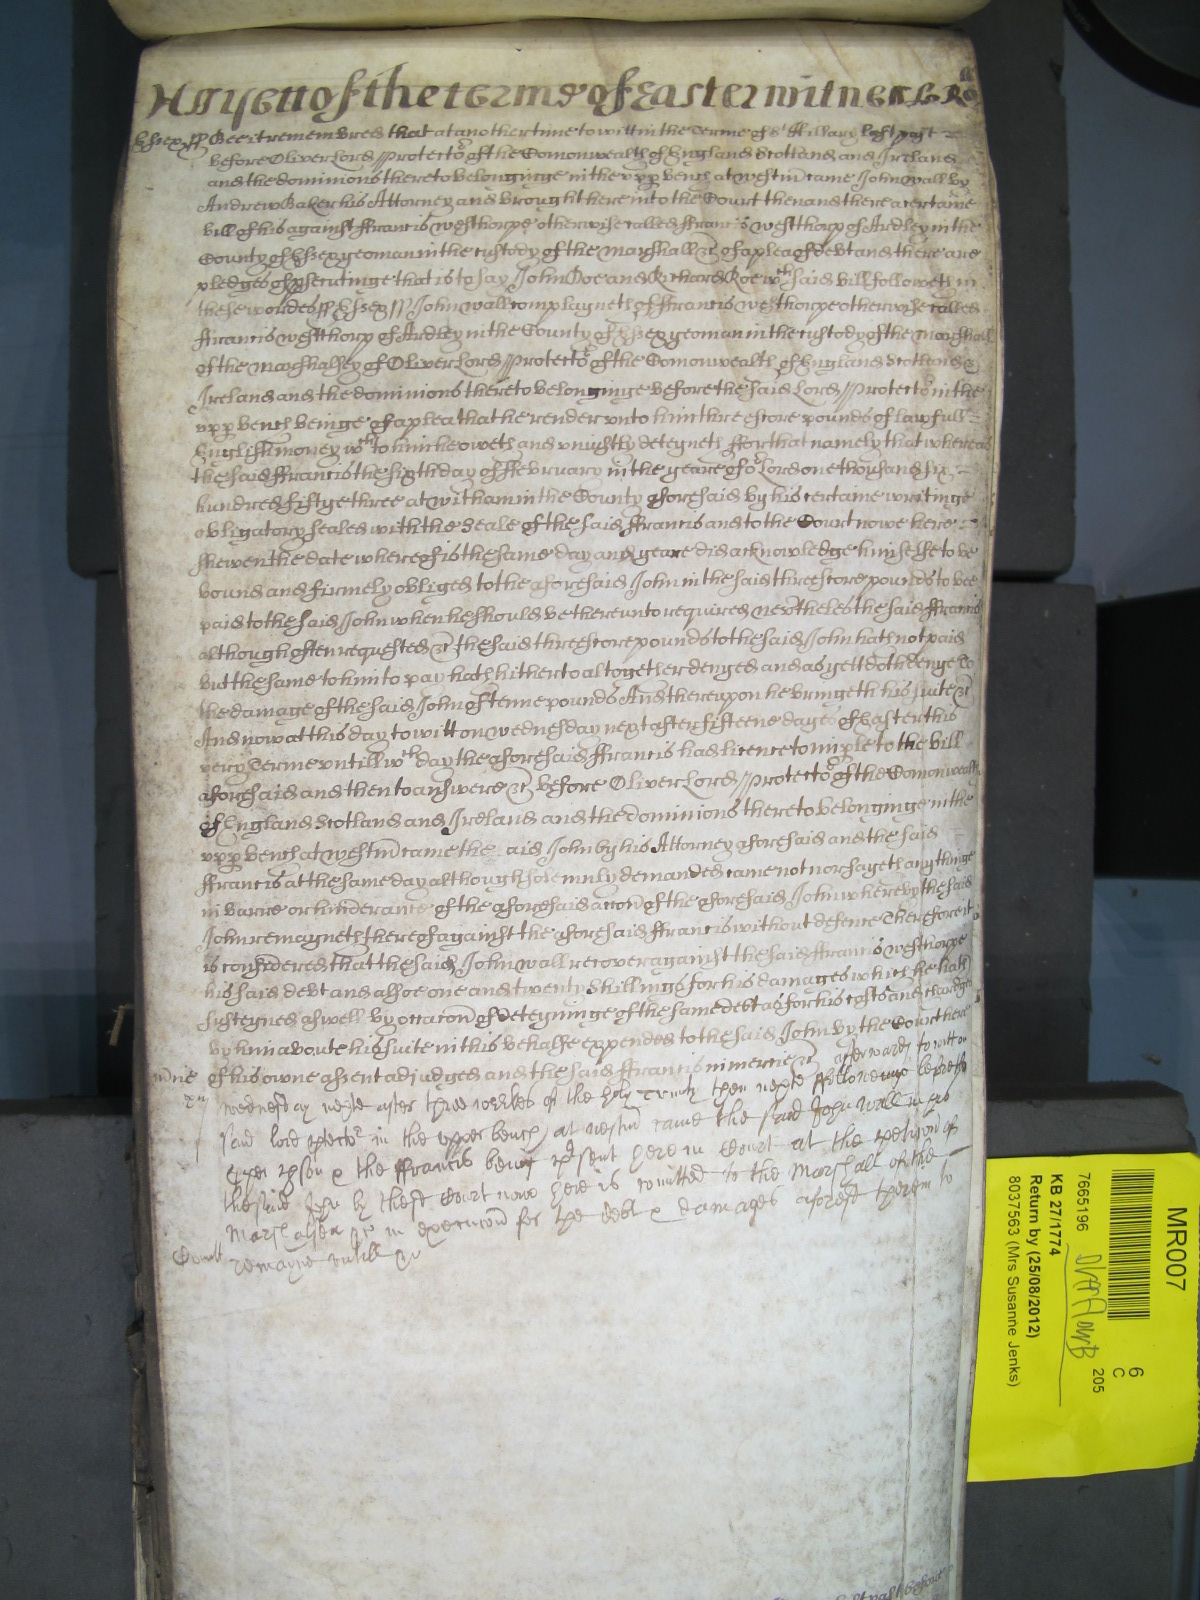 As yett of the terme of Easter witnes R: Ro
Essex ss Bee it remembred that at another time to witt in the Terme of St Hillary last past
before Oliver Lord Protector of the Comonwealth of England Scotland and Ireland
and the dominions thereto belonginge in the upp bench at Westm came John Wall by
Andrew Baker his Attorney and brought here into the Court then and there a certaine
bill of his against ffrancis Westhorpe otherwise called ffrancis Westhorp of Ardley in the
County of Essex yeoman in the custody of the marshall &c of a plea of debt and there are
pledges of psecutinge that is to say John Doe and Richard Roe wch said bill followeth in
these wordes ss Essex ss John Wall complayneth of ffrancis Westhorpe otherwise called
ffrancis Westhorp of Ardley in the County of Essex yeoman in the custody of the marshall
of the marshalsey of Oliver Lord Protector of the Comonwealth of England Scotland &
Ireland and the dominions thereto belonginge before the said Lord Protector in the
upp bench beinge of a plea that he render unto him threescore pounds of lawfull
English money wch to him he oweth and uniustly deteyneth ffor that namely that whereas
the said ffrancis the sixth day of ffebruary in the yeare of or Lord one thousand six
hundred fiftye three at Witham in the County aforesaid by his certaine writinge
obligatory sealed with the seale of the said ffrancis and to the Court nowe here
shewen the date whereof is the same day and yeare did acknowledge himselfe to be
bound and firmely obliged to the aforesaid John in the said threescore pounds to bee
paid to the said John when he should be thereunto required nevtheles the said ffrancis
although often requested &c the said threescore pounds to the said John hath not paid
but the same to him to pay hath hitherto altogether denyed and as yett doth denye to
the damage of the said John of tenne pounds And thereupon he bringeth his suite &c
And now at this day to witt on Wednesday next after fifteene dayes of Easter this
very Terme untill wch day the aforesaid ffrancis had licence to imple to the bill
aforesaid and then to answere &c before Oliver Lord Protector of the Comonwealth
of England Scotland and Ireland and the dominions thereto belonginge in the
upp bench at Westm came the aid John by his Attorney aforesaid and the said
ffrancis at the same day although solemnly demanded came not nor sayeth any thinge
in barre or hinderance of the aforesaid accon of the aforesaid John whereby the said
John remayneth thereof against the aforesaid ffrancis without defence Therefore it
is considered that the said John Wall recover against the said ffrancis Westhorpe
his said debt and alsoe one and twenty shillings for his damages which he hath
susteyned aswell by occacon of deteyninge of the same debt as for his costs and charges
by him aboute his suite in this behalfe expended to the said John by the Court here
mcie of his owne assent adjudged and the said ffrancis in mercie &c afterwards to witt on
wednesday next after three weekes of the holy Trinity then next followeinge before the
said lord ptector in the upper bench at westm came the said John Wall in his
pper pson & the ffrancis being psent here in Court at the peticon of
the said John by the Court now here is comitted to the Marshall of the
Marshalsea &c in execucon for the debt & damages aforesd therein to
Comitt remayne untill &c
MR007
7665196
6
C
205
KB 27/1774
Return by (25/08/2012)
8037563 (Mrs Susanne Jenks)